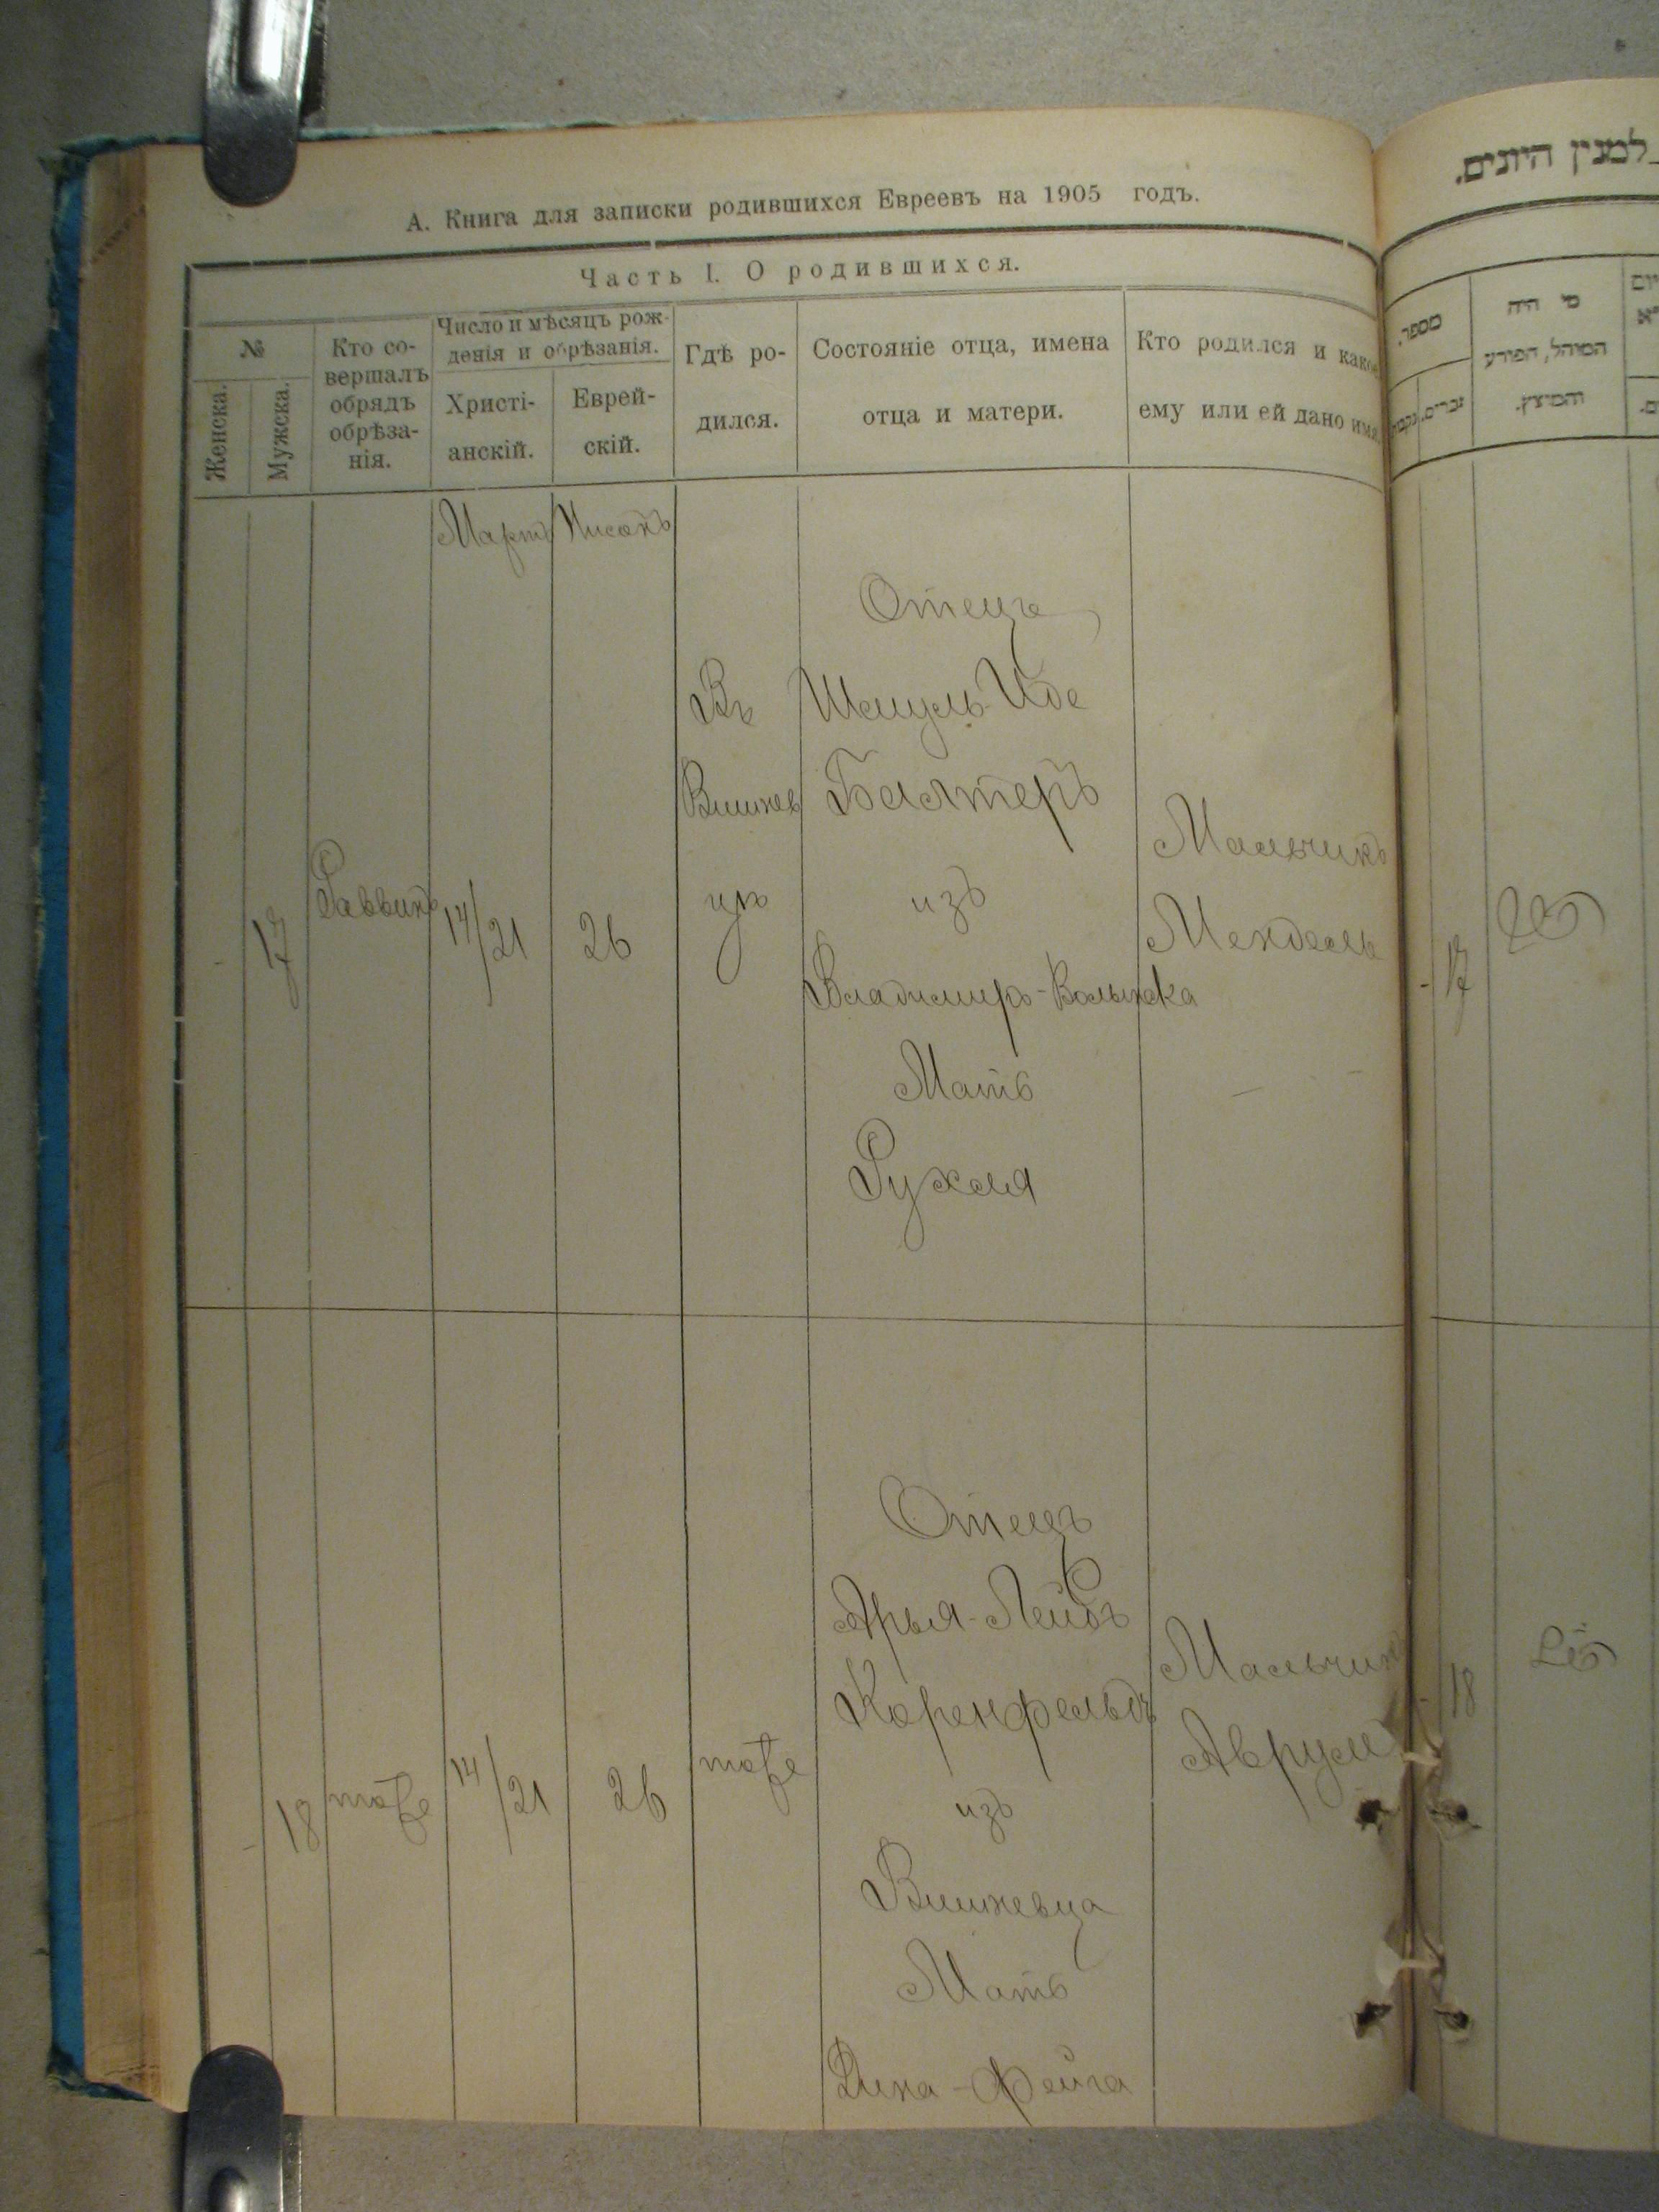 А. Книга для записки родившихся Евреевъ на 1905 годъ.
Часть I. О родившихся.
№
Женска.
Мужска.
Кто со-
вершалъ
обрядъ
обрѣза-
нія.
Число и мѣсяцъ рож-
денія и обрѣзанія.
Христі-
анскій.
Еврей-
скій.
Гдѣ ро-
дился.
Состояніе отца, имена
отца и матери.
Кто родился и како
ему или ей дано имя
Мартъ
Нисонъ
-
17
Раввинъ
14/21
26
Въ
Вишнев
цѣ
Отецъ
Шмуль-Иде
изъ
Владимиръ-Волынска
Мать
Рухля
Мальчикъ
Мендель
-
18
тоже
14/21
26
тоже
Отецъ
Арыя-Лейбъ
Коренфельдъ
изъ
Вишневца
Мать
Дина-Фейга
Мальчик
Аврум
למנין היונים.
מספר.
זכרים.
מי היה
המוהל, הפורע
והמוצץ.
- 17
- 18